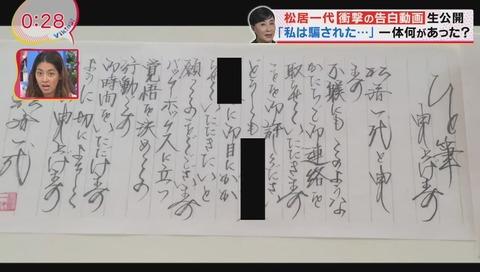 0:28
松居一代 衝撃の告白動画 生公開
「私は騙された…」一体何があった?
ひと筆
申し上げます
松居一代と申
不躾にもこのような
かたちで御連絡を
ことを御許し
どうしても
に御目にかか
らせていただきたいと
願って
バッターボックスに立つ
覚悟を決めての
行動です
御時間をいただけます
ように切に
申し上げます
松居一代